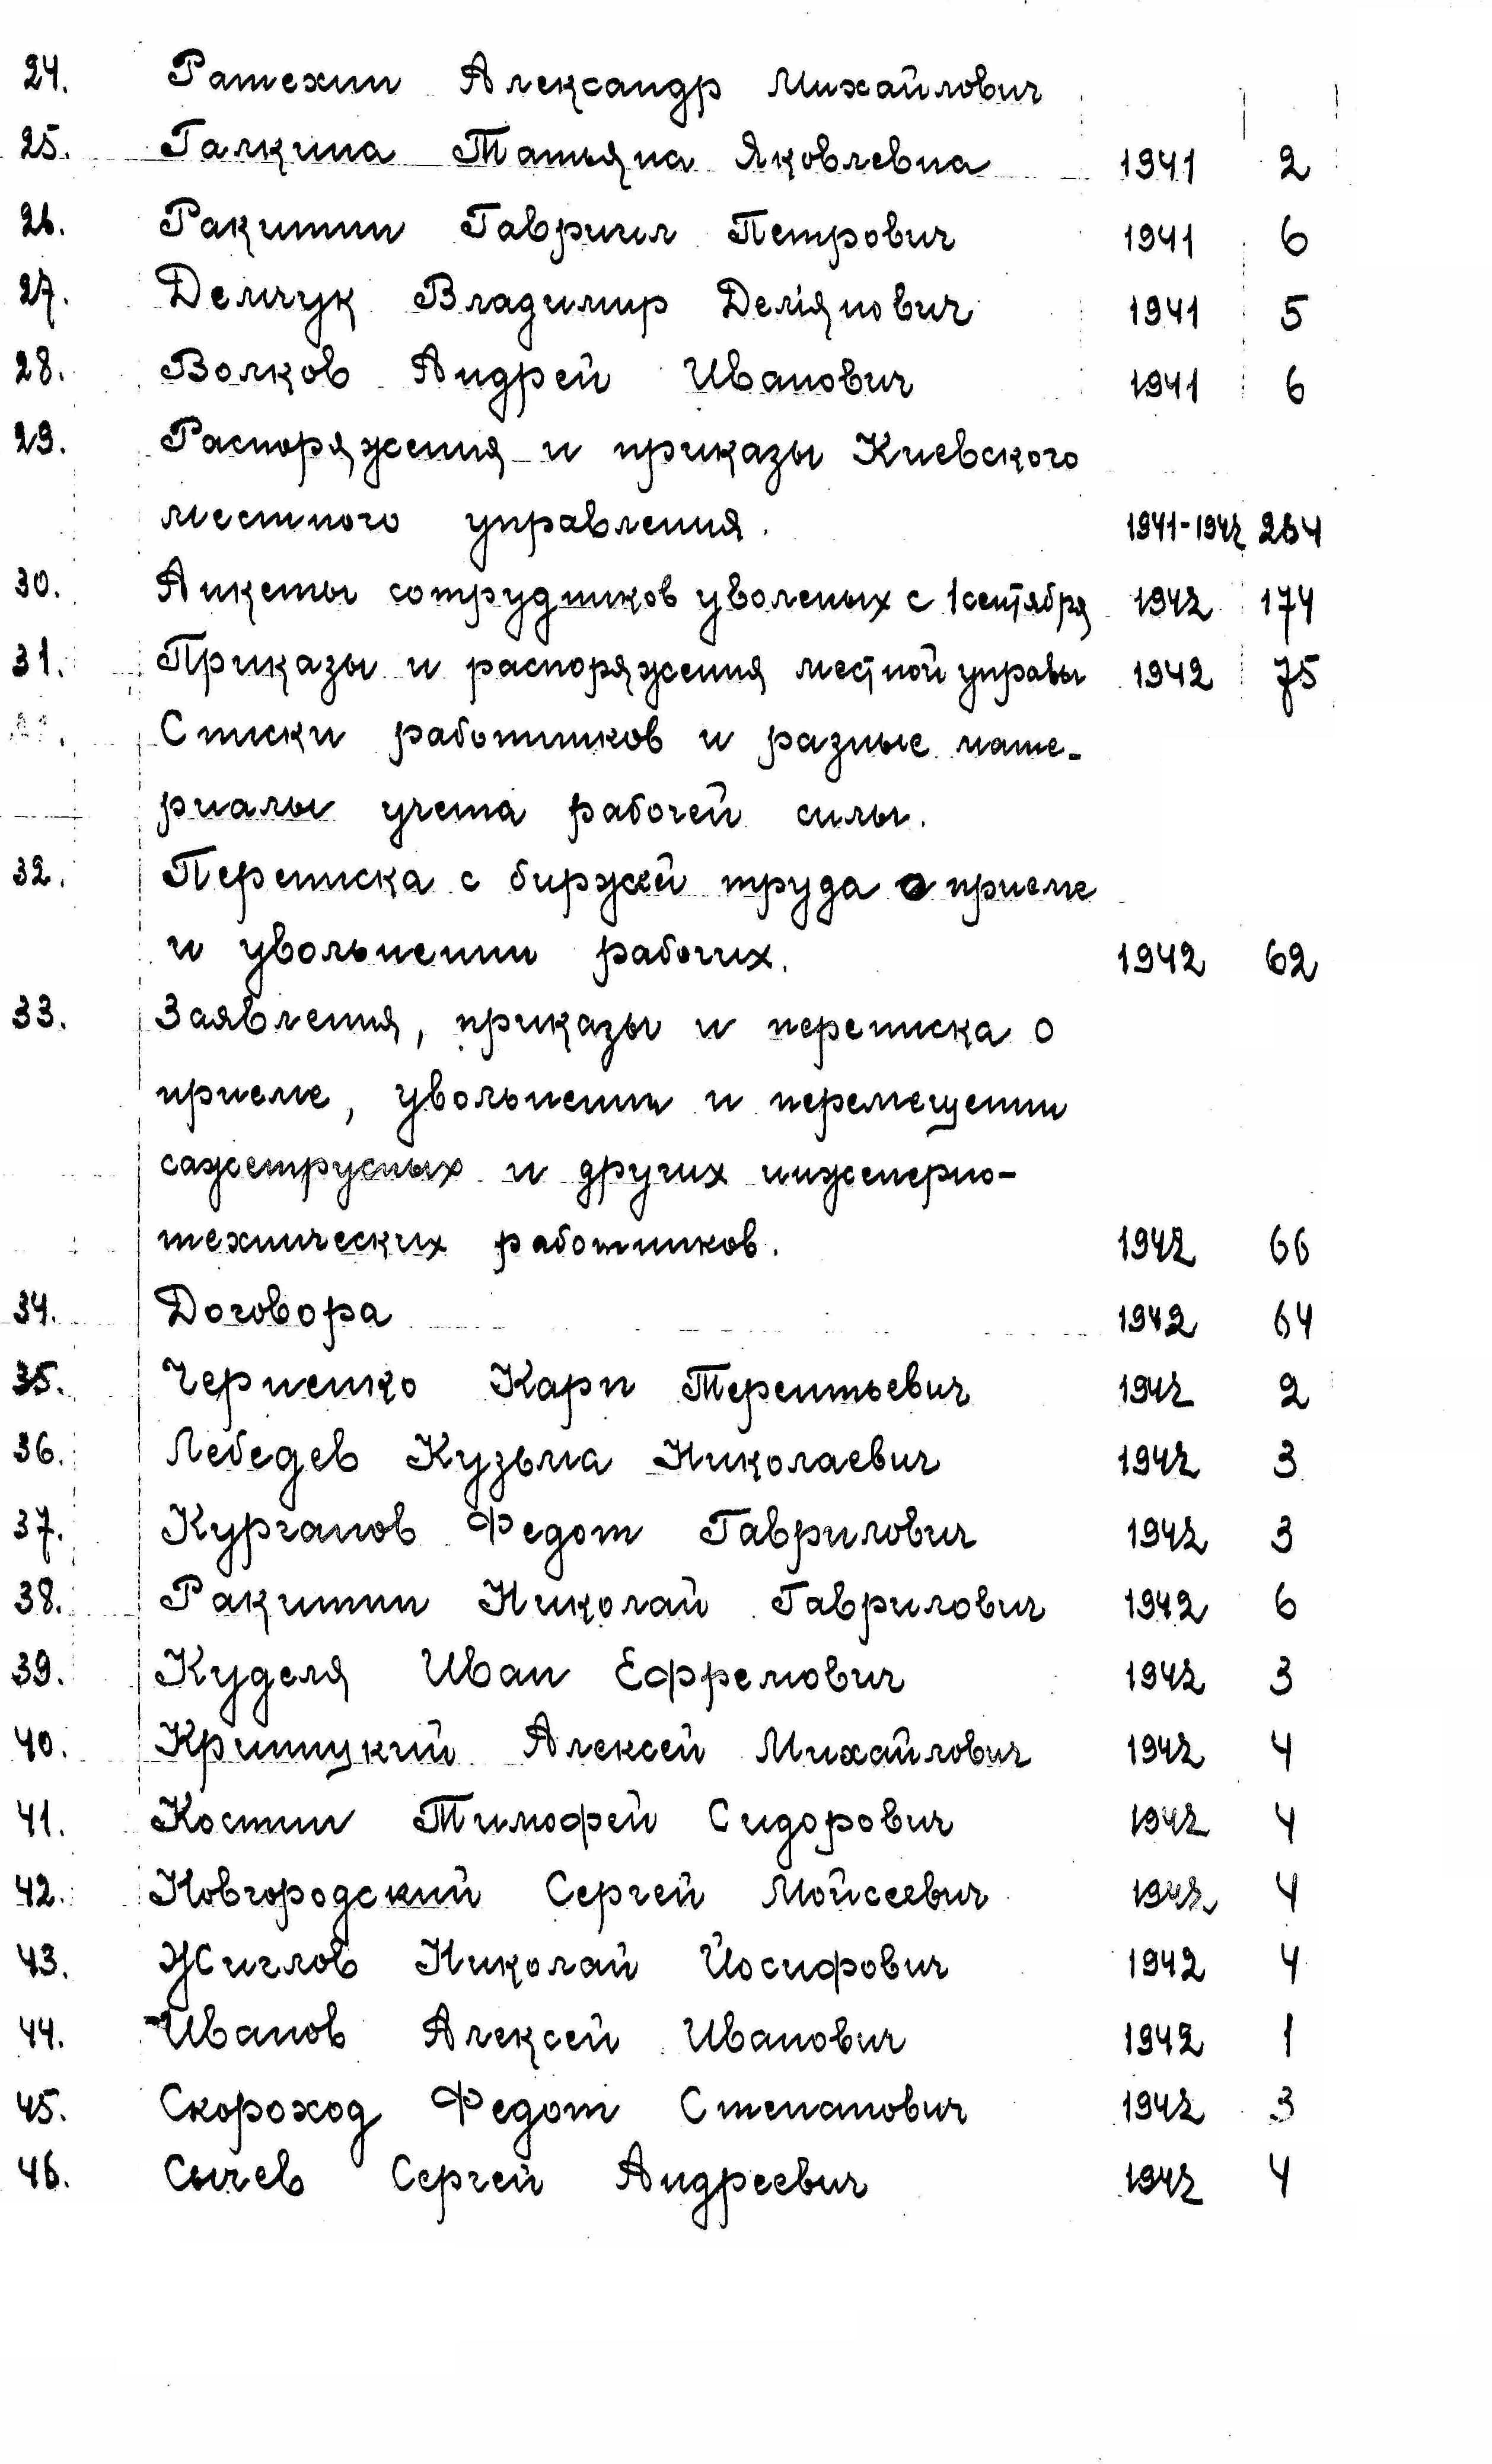 24. Ратехин Александр Михайлович
25. Галкина Татьяна Яковлевна 1941 2
26. Ракитин Гавриил Петрович 1941 6
27. Демчук Владимир Демянович 1941 5
28. Волков Андрей Иванович 1941 6
29. Распоряжения и приказы Киевского
местного управления. 1941-1942 264
30. Анкеты сотрудников уволеных с 1 сентября 1942 174
31. Приказы и распоряжения местной управы 1942 75
Списки работников и разные мате-
риалы учета рабочей силы.
32. Переписка с биржей труда о приеме
и увольнении рабочих. 1942 62
33. Заявления, приказы и переписка о
приеме, увольнении и перемещении
сажетрусных и других инженерно-
технических работников. 1942 66
34. Договора 1942 64
35. Черненко Карп Терентьевич 1942 2
36. Лебедев Кузьма Николаевич 1942 3
37. Курганов Федот Гаврилович 1942 3
38. Ракитин Николай Гаврилович 1942 6
39. Куделя Иван Ефремович 1942 3
40. Криницкий Алексей Михайлович 1942 4
41. Костин Тимофей Сидорович 1942 4
42. Новгородский Сергей Мойсеевич 1942 4
43. Жиглов Николай Йосифович 1942 4
44. Иванов Алексей Иванович 1942 1
45. Скороход Федот Степанович 1942 3
46. Сычев Сергей Андреевич 1942 4